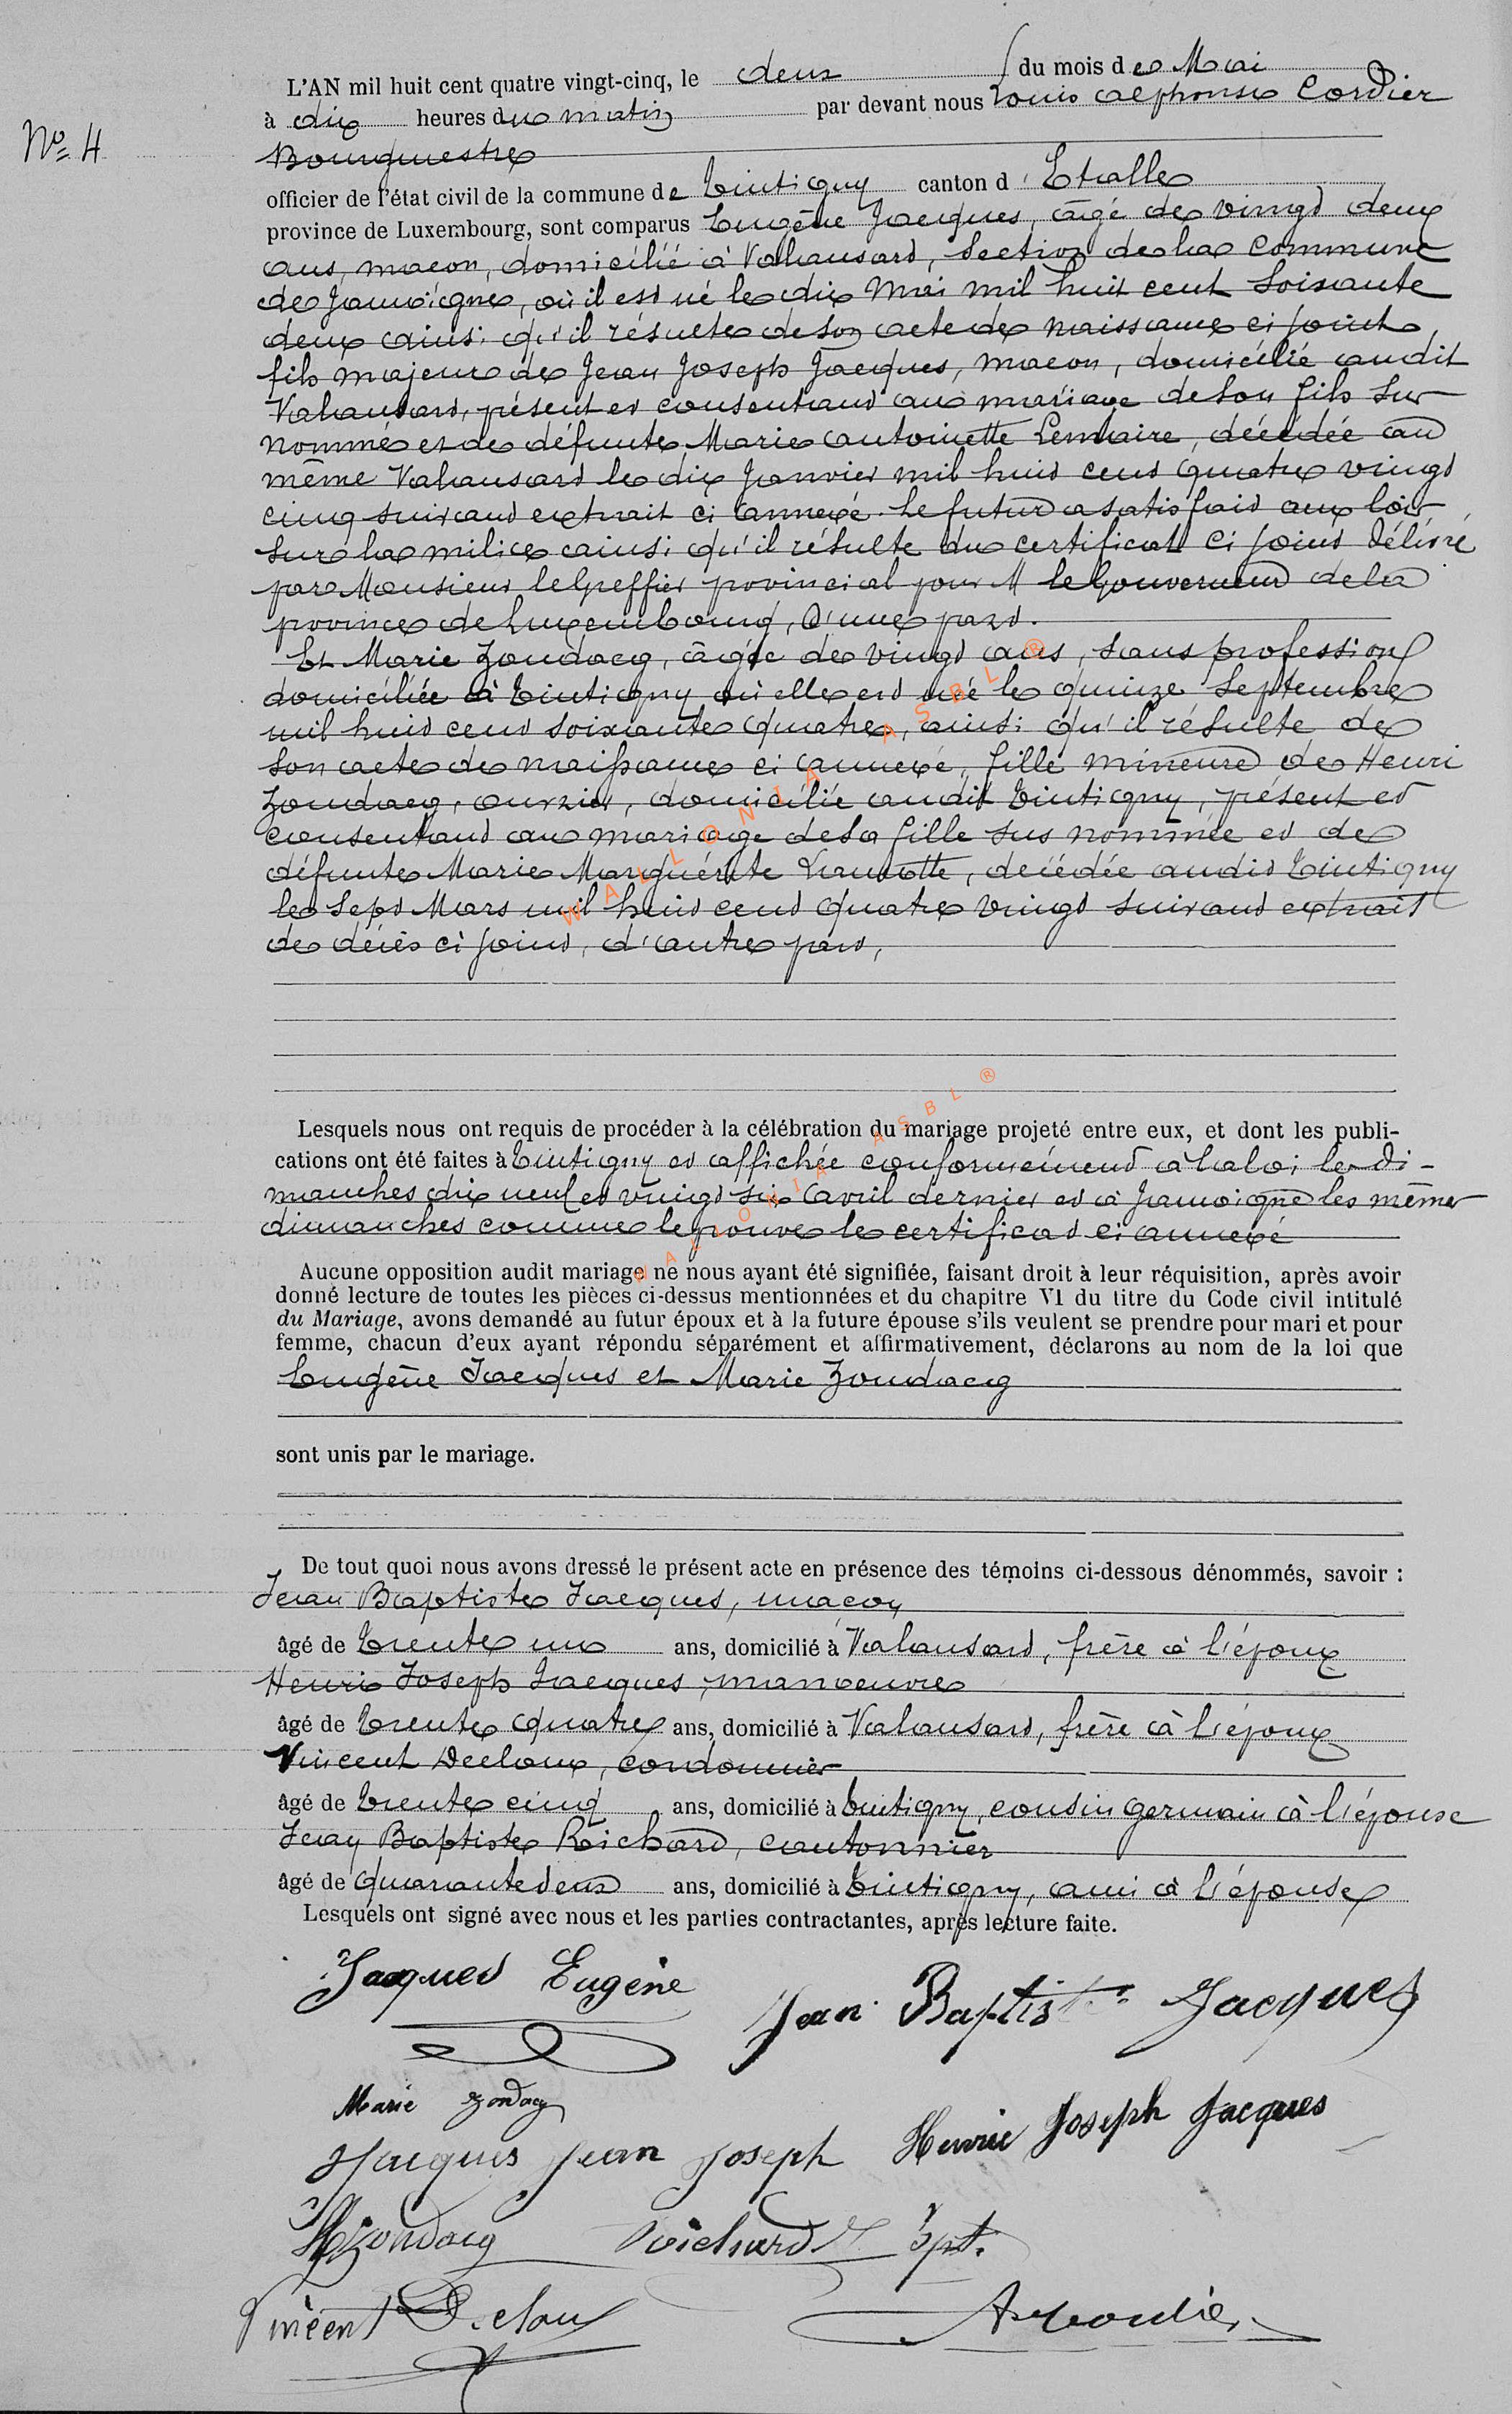 L'AN mil huit cent quatre vingt-cinq, le deux du mois de Mai
à dix heures du matin par devant nous Louis Alphonse Cordier
No 4
Bourgmestre
officier de l'état civil de la commune de Tintigny canton d'Etalle
province de Luxembourg, sont comparus Eugène Jacques, âgé de vingt deux
ans, maçon, domicilié à Valansard, section de la commune
de Jamoigne, où il est né le dix Mai mil huit cent soixante
deux ainsi qu'il résulte de son acte de naissance ci joint,
fils majeur de Jean Joseph Jacques, maçon, domicilié audit
Valansard, présent et consentant au mariage de son fils sur
nommé et de défunte Marie Antoinette Lemaire, décédée au
même Valansard le dix Janvier mil huit cent quatre vingt
cinq suivant extrait ci annexé. Le futur a satisfait aux lois
sur la milice ainsi qu'il résulte du certificat ci joint délivré
par Monsieur le Greffier provincial pour M le Gouverneur de la
province de Luxembourg, d'une part.
Et Marie Zondacq, âgée de vingt ans, sans profession
domiciliée à Tintigny où elle est née le quinze Septembre
mil huit cent soixante quatre, ainsi qu'il résulte de
son acte de naissance ci annexé, fille mineure de Henri
Zondacq, ouvrier, domicilié audit Tintigny, présent et
consentant au mariage de sa fille sus nommée et de
défunte Marie Marguérite décédée audit Tintigny
le sept Mars mil huit cent quatre vingt suivant extrait
de décès ci joint, d'autre part,
WALLONIA ASBL ®
Lesquels nous ont requis de procéder à la célébration du mariage projeté entre eux, et dont les publi-
cations ont été faites à Tintigny et affichée conformément à la loi les di-
manches dix neuf et vingt six avril dernier et à Jamoigne les mêmes
dimanches comme le prouve le certificat ci annexé
WALLONIA ASBL ®
Aucune opposition audit mariage ne nous ayant été signifiée, faisant droit à leur réquisition, après avoir
donné lecture de toutes les pièces ci-dessus mentionnées et du chapitre VI du titre du Code civil intitulé
du Mariage, avons demandé au futur époux et à la future épouse s'ils veulent se prendre pour mari et pour
femme, chacun d'eux ayant répondu séparément et affirmativement, déclarons au nom de la loi que
Eugène Jacques et Marie Zondacq
sont unis par le mariage.
De tout quoi nous avons dressé le présent acte en présence des témoins ci-dessous dénommés, savoir :
Jean Baptiste Jacques, maçon
âgé de trente un ans, domicilié à Valansard, frère à l'époux
Henri Joseph Jacques, manoeuvre
âgé de trente quatre ans, domicilié à Valansard, frère à l'époux
Vincent Decloux, cordonnier
âgé de trente cinq ans, domicilié à Tintigny, cousin germain à l'épouse
Jean Baptiste Richard, cantonnier
âgé de quarante deux ans, domicilié à Tintigny, ami à l'épouse
Lesquels ont signé avec nous et les parties contractantes, après lecture faite.
Jacques Eugène
Jean Baptiste Jacques
Marie Zondacq
Jacques Jean Joseph Henrie Joseph Jacques
HZondacq Richard Bpt.
Vincent Decloux
A Cordier